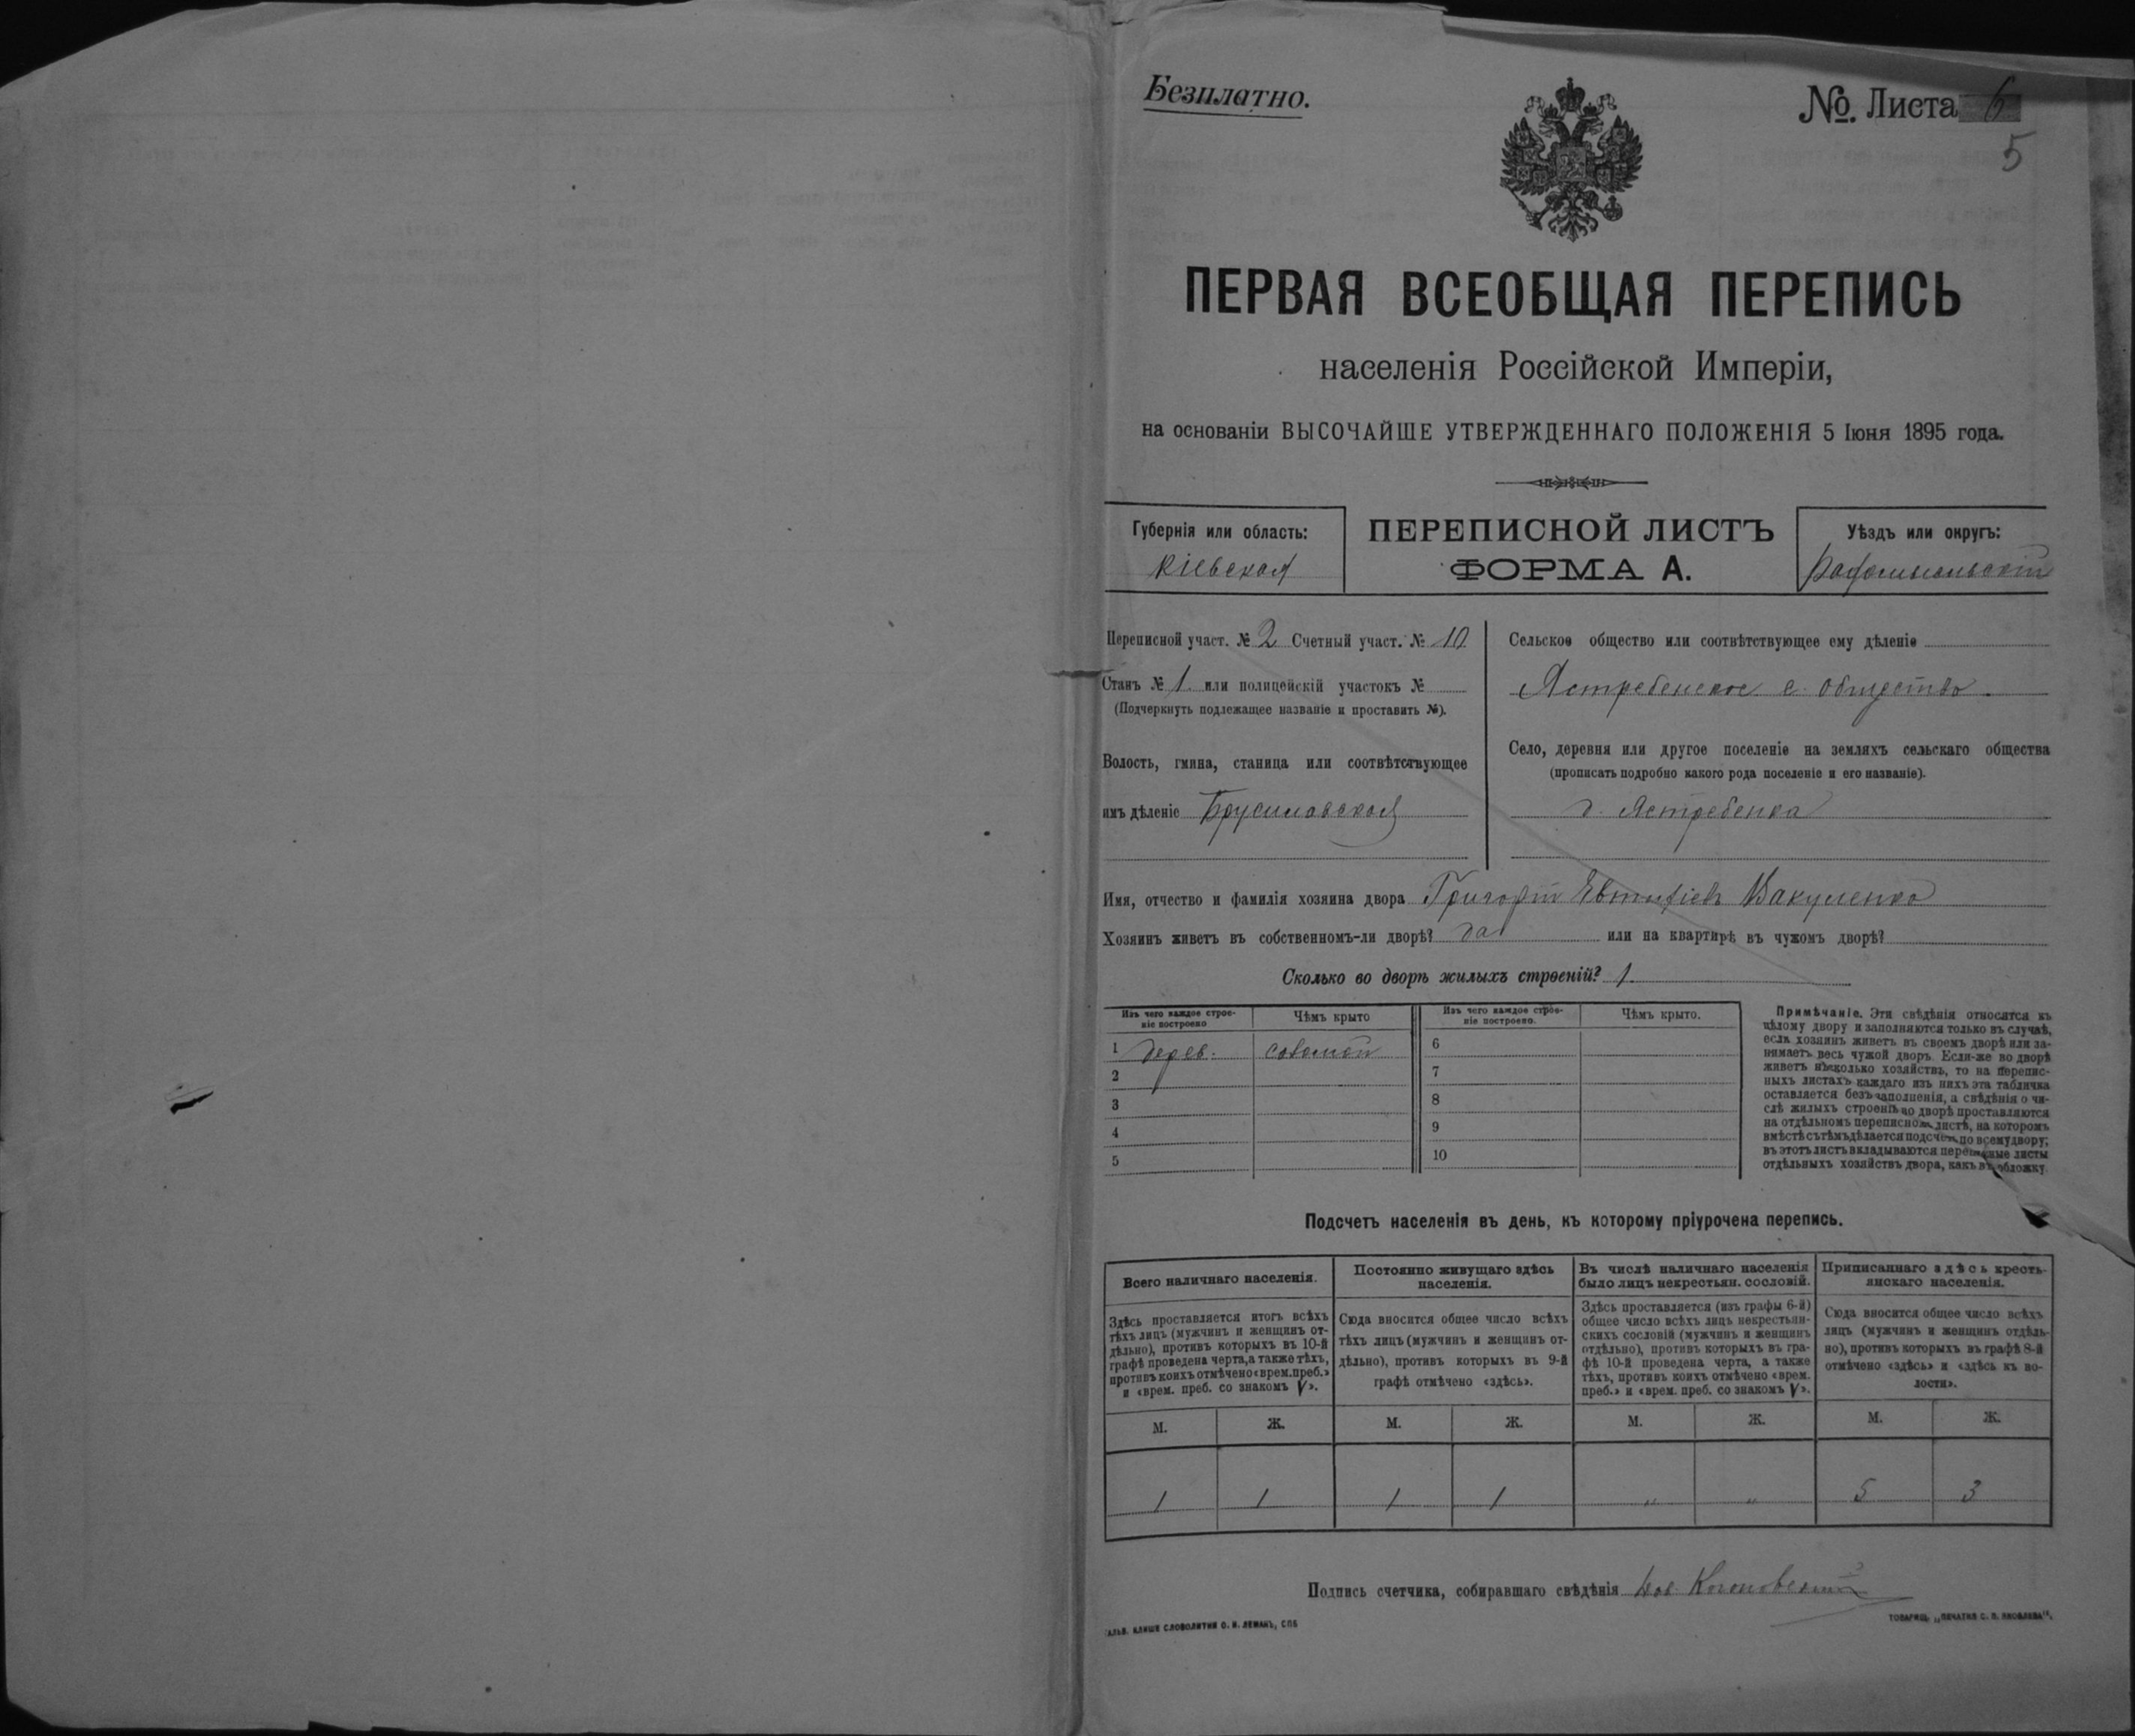 Безплатно.
№. Листа 6
5
ПЕРВАЯ ВСЕОБЩАЯ ПЕРЕПИСЬ
населенія Россійской Имперіи,
на основаніи ВЫСОЧАЙШЕ УТВЕРЖДЕННАГО ПОЛОЖЕНІЯ 5 Іюня 1895 года.
Губернія или область:
Кіевская
ПЕРЕПИСНОЙ ЛИСТЪ
ФОРМА А.
Уѣздъ или округъ:
Радомысльскій
Переписной участ. № 2 Счетный участ. № 10
Станъ № 1 или полицейскій участокъ №
(Подчеркнуть подлежащее названіе и проставить №).
Волость, гмина, станица или соотвѣтствующее
имъ дѣленіе Брусиловская
Сельское общество или соотвѣтствующее ему дѣленіе
Ястребенское с. общество.
Село, деревня или другое поселеніе на земляхъ сельскаго общества
(прописать подробно какого рода поселеніе и его названіе).
д. Ястребенка
Имя, отчество и фамилія хозяина двора Григорій Евтихіевъ Вакуленко
Хозяинъ живетъ въ собственномъ-ли дворѣ? да или на квартирѣ въ чужомъ дворѣ?
Сколько во дворѣ жилыхъ строеній? 1.
Изъ чего каждое строе-
ніе построено
Чѣмъ крыто
Изъ чего каждое строе-
ніе построено.
Чѣмъ крыто.
1 дерев. соломой
2
3
4
5
6
7
8
9
10
Примѣчаніе. Эти свѣдѣнія относятся къ
цѣлому двору и заполняются только въ случаѣ,
если хозяинъ живетъ въ своемъ дворѣ или за-
нимаетъ весь чужой дворъ. Если-же во дворѣ
живетъ нѣсколько хозяйствъ, то на перепис-
ныхъ листахъ каждаго изъ нихъ эта табличка
оставляется безъ заполненія, а свѣдѣнія о чи-
слѣ жилыхъ строеній во дворѣ проставляются
на отдѣльномъ переписномъ листѣ, на которомъ
вмѣстѣ съ тѣмъ дѣлается подсчетъ по всему двору;
въ этотъ листъ вкладываются переписные листы
отдѣльныхъ хозяйствъ двора, какъ въ обложку.
Подсчетъ населенія въ день, къ которому пріурочена перепись.
Всего наличнаго населенія.
Здѣсь проставляется итогъ всѣхъ
тѣхъ лицъ (мужчинъ и женщинъ от-
дѣльно), противъ которыхъ въ 10-й
графѣ проведена черта, а также тѣхъ,
противъ коихъ отмѣчено «врем. преб.»
и «врем. преб. со знакомъ V».
Постоянно живущаго здѣсь
населенія.
Сюда вносится общее число всѣхъ
тѣхъ лицъ (мужчинъ и женщинъ от-
дѣльно), противъ которыхъ въ 9-й
графѣ отмѣчено «здѣсь».
Въ числѣ наличнаго населенія
было лицъ некрестьян. сословій.
Здѣсь проставляется (изъ графы 6-й)
общее число всѣхъ лицъ некрестьян-
скихъ сословій (мужчинъ и женщинъ
отдѣльно), противъ которыхъ въ гра-
фѣ 10-й проведена черта, а также
тѣхъ, противъ коихъ отмѣчено «врем.
преб.» и «врем. преб. со знакомъ V».
Приписаннаго здѣсь кресть-
янскаго населенія.
Сюда вносится общее число всѣхъ
лицъ (мужчинъ и женщинъ отдѣль-
но), противъ которыхъ въ графѣ 8-й
отмѣчено «здѣсь» и «здѣсь къ во-
лости».
М. Ж. М. Ж. М. Ж. М. Ж.
1 1 1 1 " " 5 3
Подпись счетчика, собиравшаго свѣдѣнія
АЛЬВ. КЛИШЕ СЛОВОЛИТНИ О. И. ЛЕМАНЪ, СПБ
ТОВАРИЩ. „ПЕЧАТНЯ С. П. ЯКОВЛЕВА".